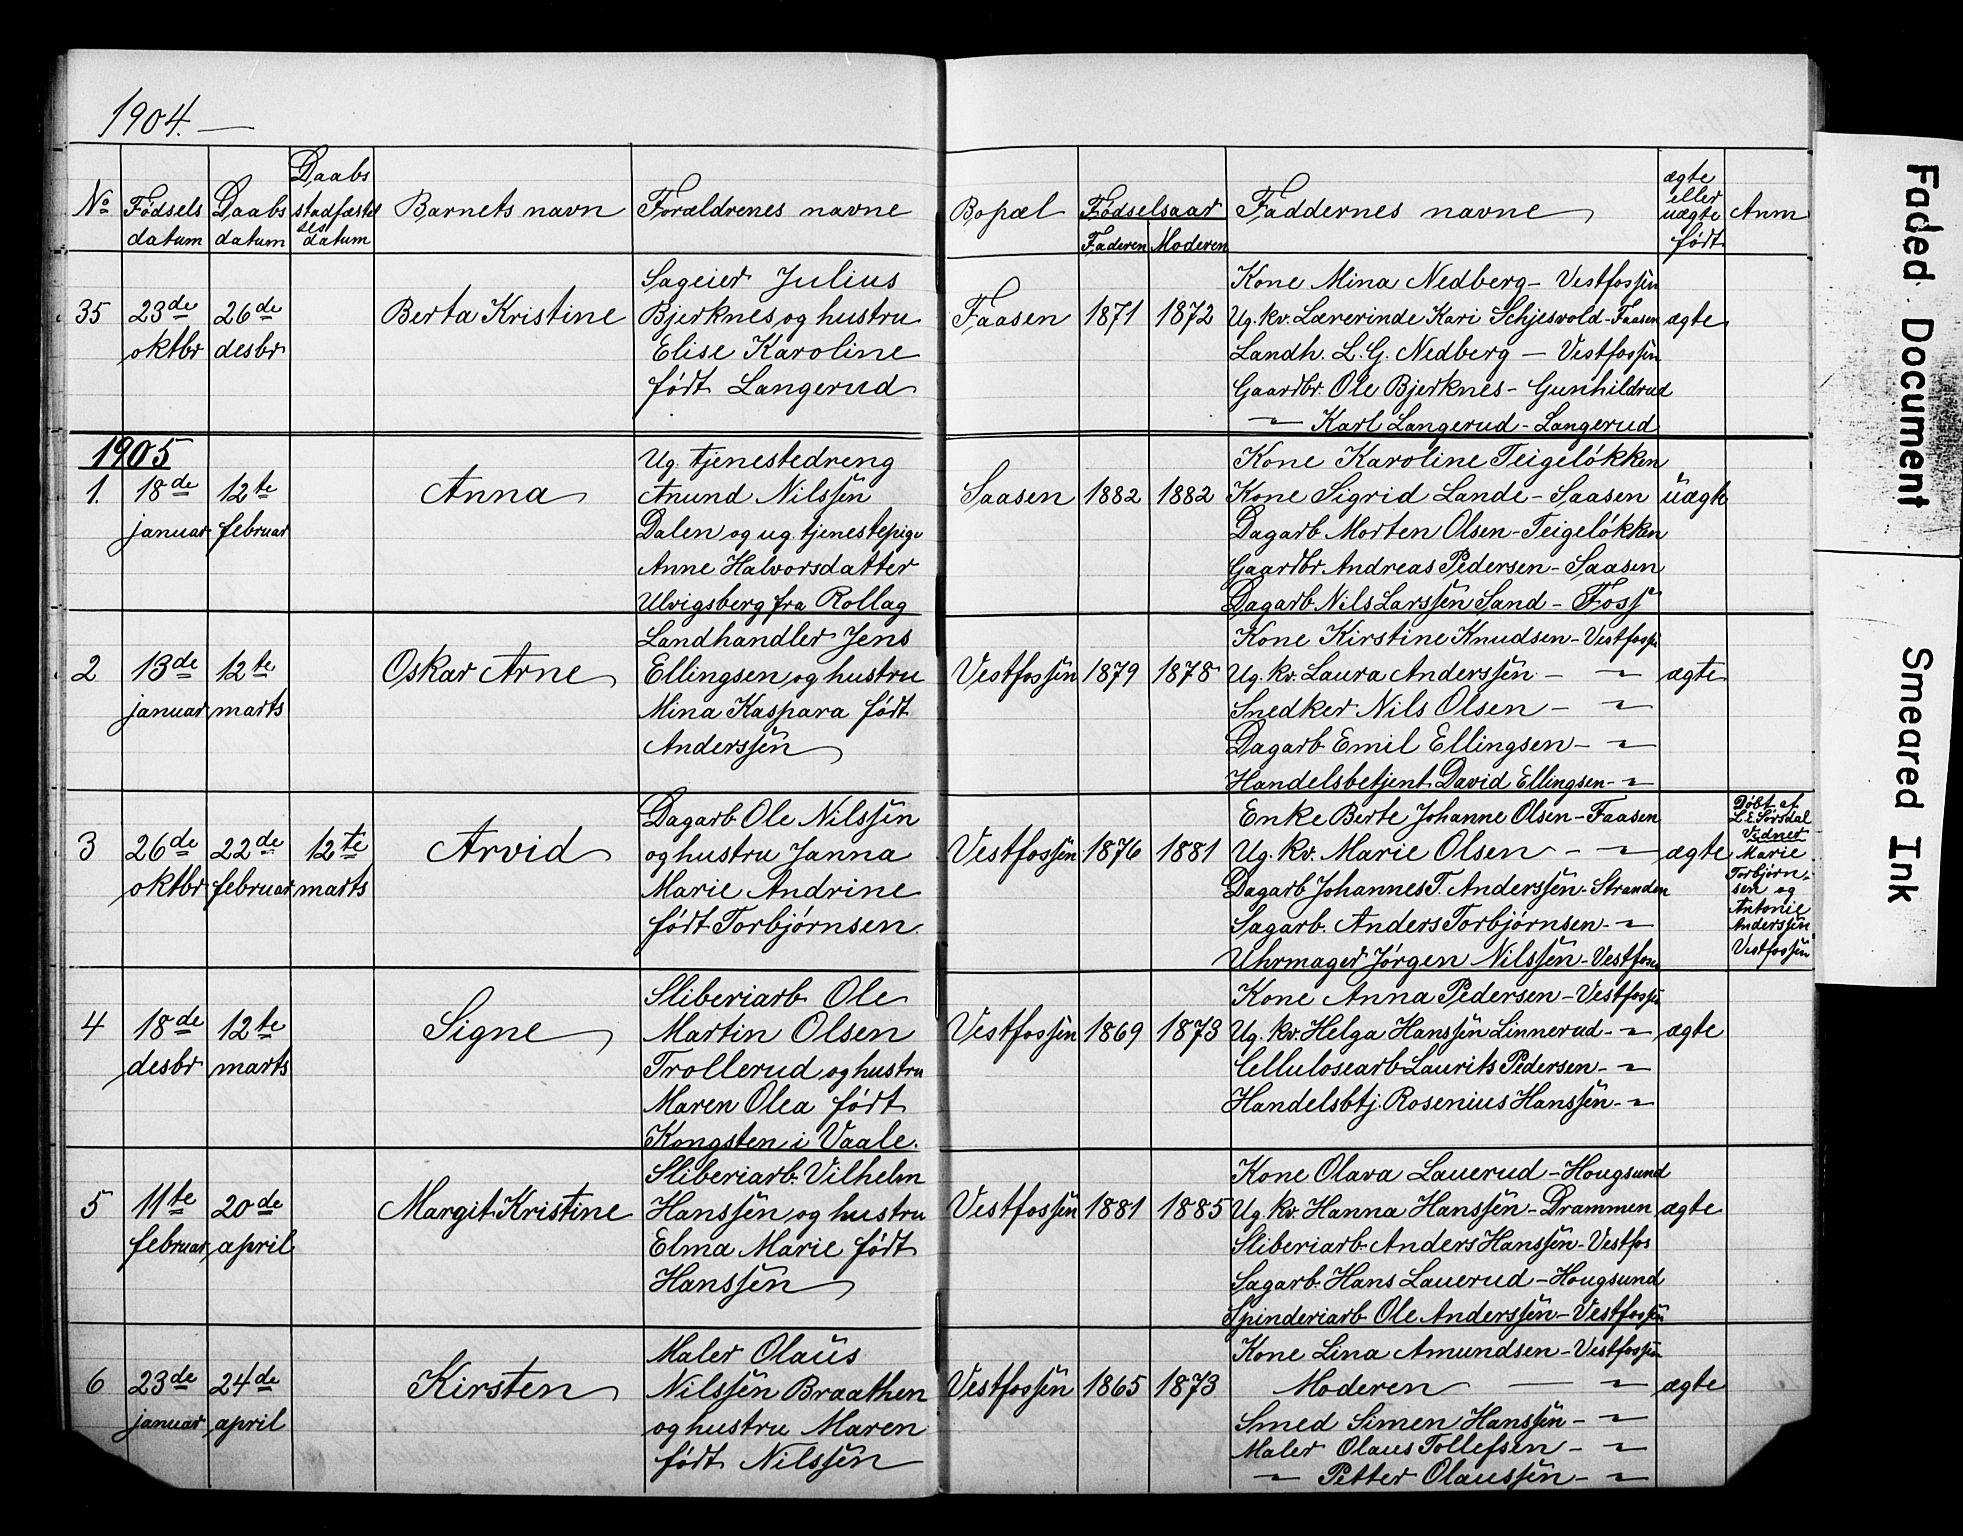 1904. —
No
Fødsels datum
Daabs datum
Daabs stadfæstelses datum
Barnets navn
Forældrenes navne
Bopæl
Fødselsaar
Faderen
Moderen
Faddernes navne
ægte eller uægte født
Anm
35
23de oktbr
26de desbr
Berta Kristine
Sageier Julius
Bjerknes og hustru
Elise Karoline
født Langerud
Faasen
1871
1872
Kone Mina Nedberg - Vestfossen
Ug. kv. Lærerinde Kari Schjesvold - Faasen
Landh. L. G. Nedberg - Vestfossen
Gaardbr. Ole Bjerknes - Gunhildrud
" Karl Langerud - Langerud
ægte
1905
1.
18de januar
12te februar
Anna
Ug. tjenestedreng
Anund Nilssen
Dalen og ug. tjenestepige
Anne Halvorsdatter
Ulvigsberg fra Rollag
Saasen
1882
1882
Kone Karoline Teigeløkken
Kone Sigrid Lande - Saasen
Dagarb Morten Olsen - Teigeløkken
Gaardbr Andreas Pedersen - Saasen
Dagarb Nils Larssen Sand - Foss
uægte
2
13de januar
12te marts
Oskar Arne
Landhandler Jens
Ellingsen og hustru
Mina Kaspara født
Anderssen
Vestfossen
1879
1878
Kone Kirstine Knudsen - Vestfossen
Ug. kv. Laura Anderssen - "
Snedker Nils Olsen - "
Dagarb Emil Ellingsen - "
Handelsbetjent David Ellingsen - "
ægte
3
26de oktbr
22de februar
12te marts
Arvid
Dagarb Ole Nilssen
og hustru Janna
Marie Andrine
født Torbjørnsen
Vestfossen
1876
1881
Enke Berte Johanne Olsen - Faasen
Ug. kv. Marie Olsen - "
Dagarb Johannes T. Anderssen - Stranden
Sagarb. Anders Torbjørnsen - "
Uhrmager Jørgen Nilssen - Vestfossen
ægte
Døbt af
L. E. Sørsdal
Vidner
Marie
Torbjørn-
sen og
Antonie
Anderssen
Vestfossen
4
18de desbr
12te marts
Signe
Sliberiarb Ole
Martin Olsen
Trollerud og hustru
Maren Olea født
Kongsten i Vaale.
Vestfossen
1869
1873
Kone Anna Pedersen - Vestfossen
Ug. kv. Helga Hanssen Linnerud - "
Cellulosearb Laurits Pedersen - "
Handelsbtj. Rosenius Hanssen - "
ægte
5
11te februar
20de april
Margit Kristine
Sliberiarb. Vilhelm
Hanssen og hustru
Elma Marie født
Hanssen
Vestfossen
1881
1885
Kone Olava Lauerud - Hougsund
Ug. kv. Hanna Hanssen - Drammen
Sliberiarb. Anders Hanssen - Vestfos
Sagarb. Hans Lauerud - Hougsund
Spinderiarb Ole Anderssen - Vestfossen
ægte
6
23de januar
24de april
Kirsten
Maler Olaus
Nilssen Braathen
og hustru Maren
født Nilssen
Vestfossen
1865
1873
Kone Lina Amundsen - Vestfossen
Moderen — "
Smed Simen Hanssen - "
Maler Olaus Tollefsen - "
" Petter Olaussen - "
ægte
Faded Document
Smeared Ink